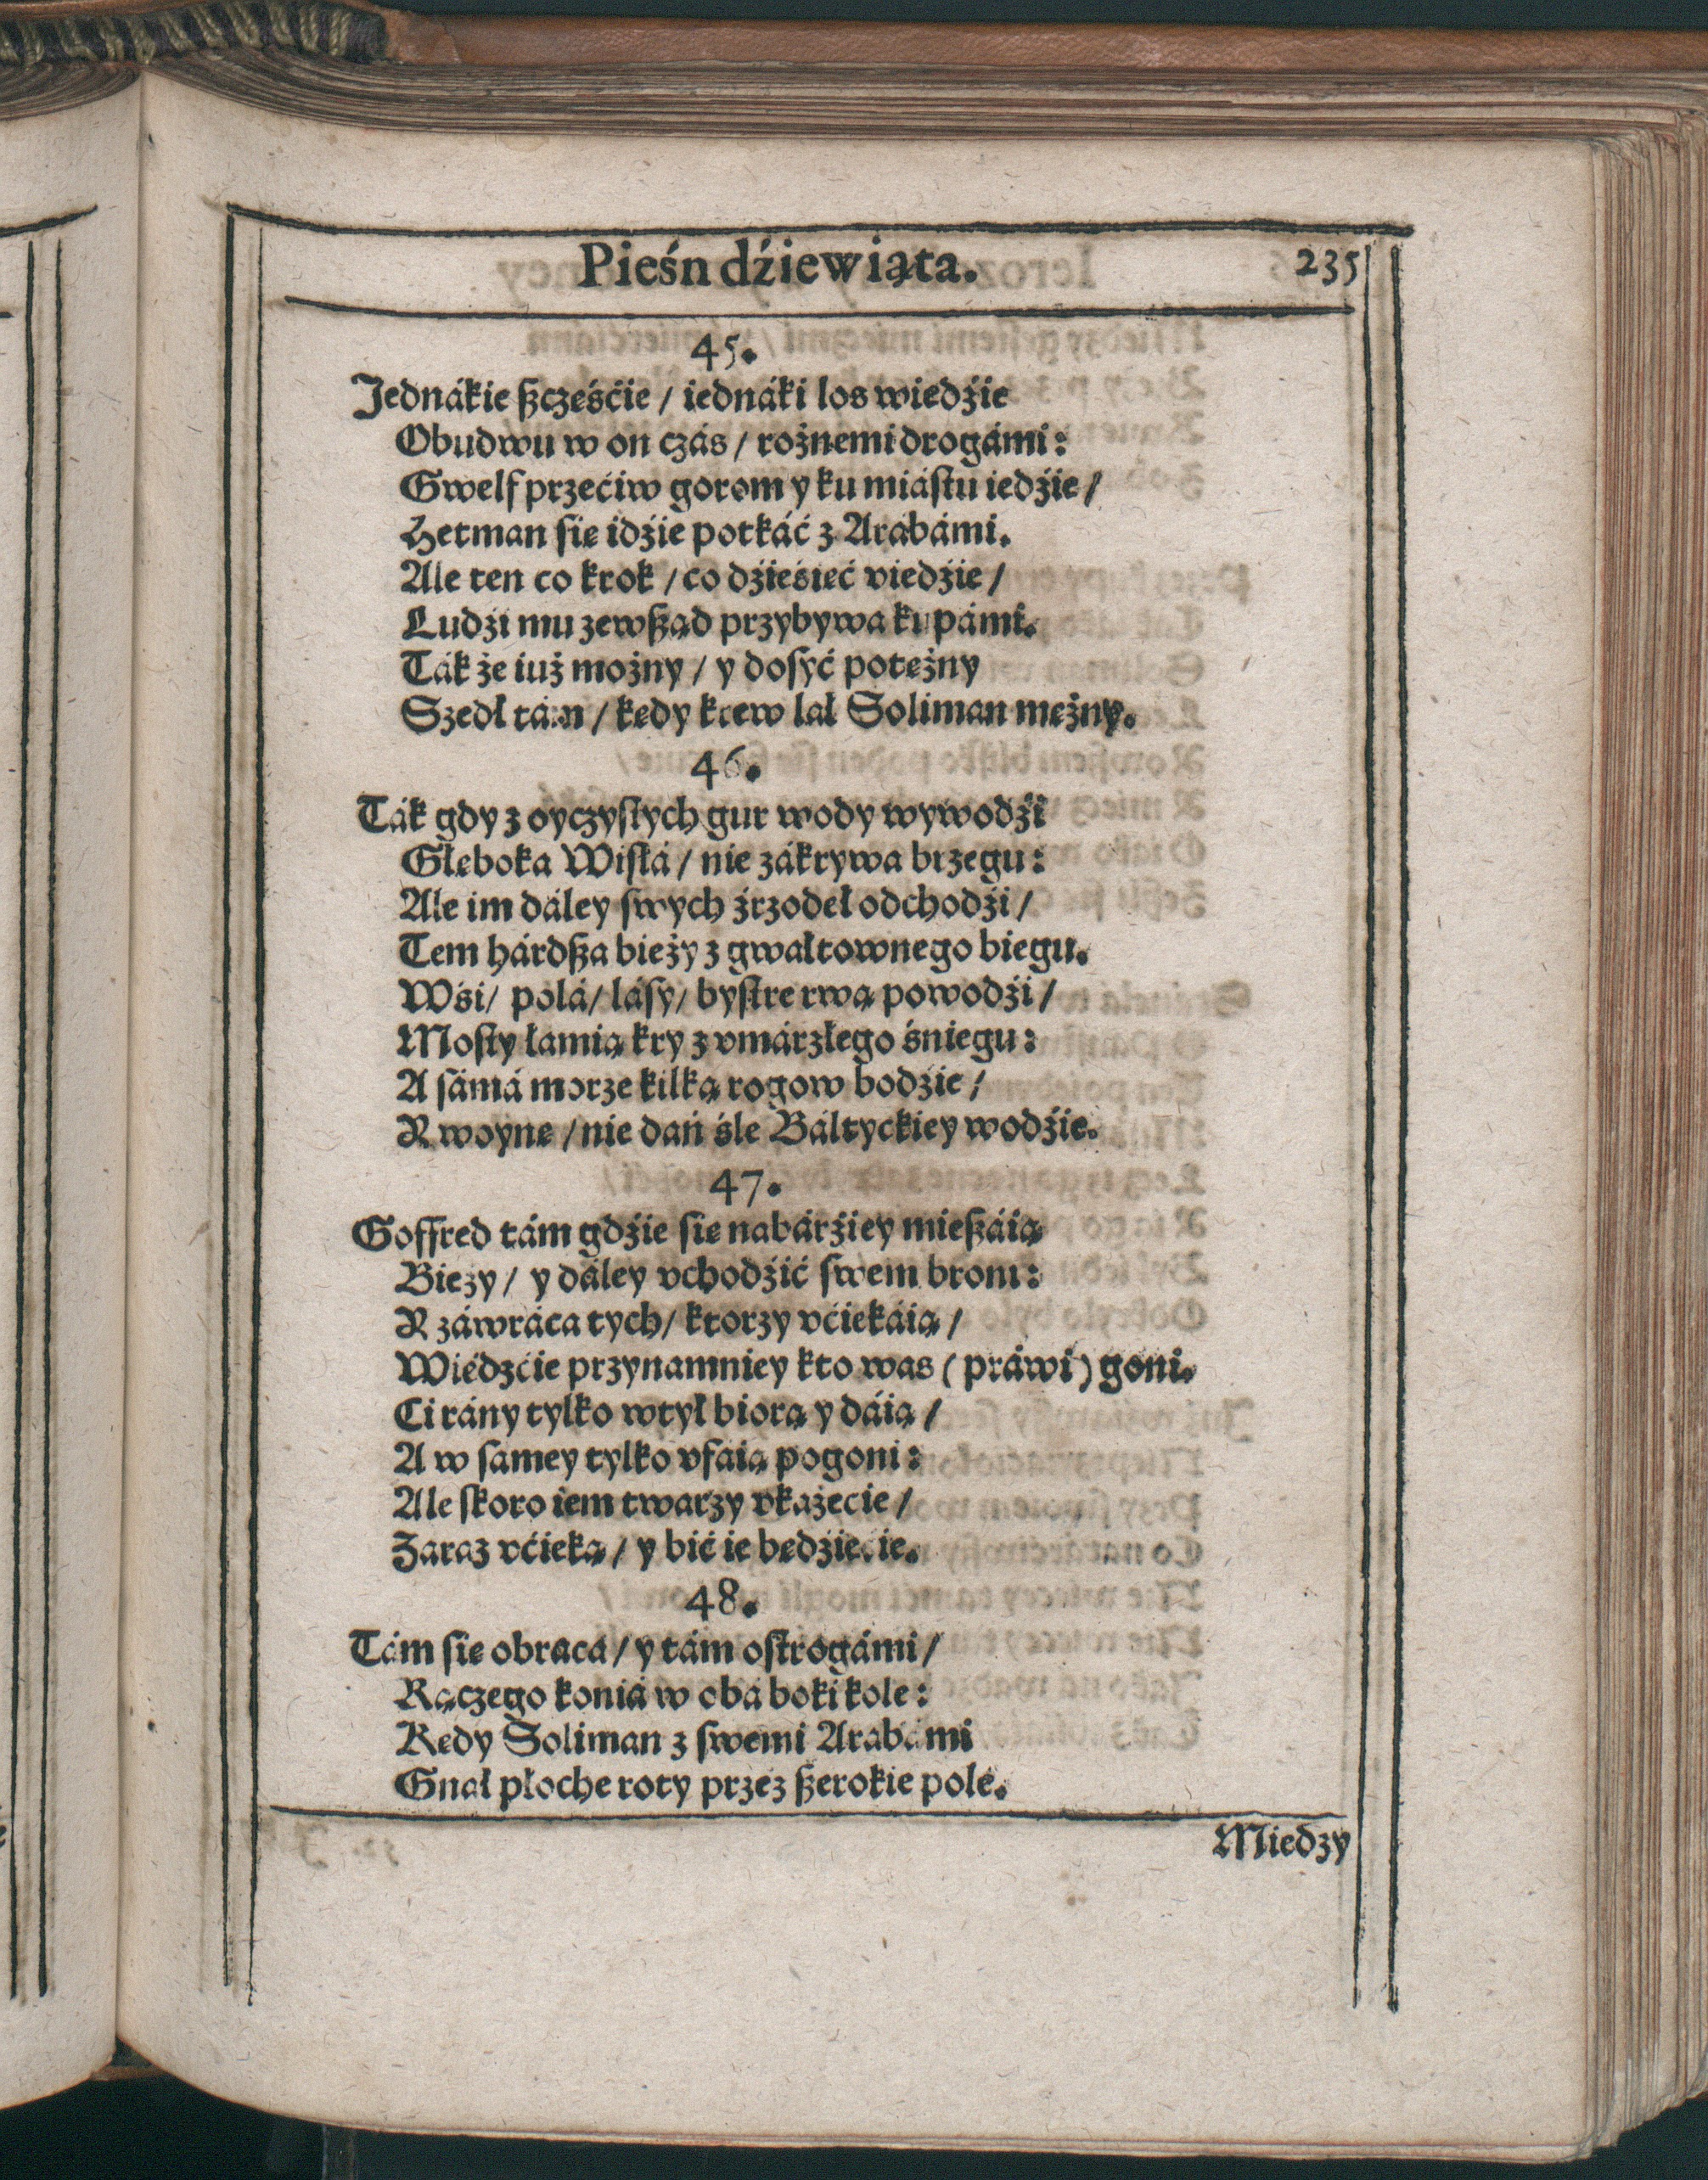 Pieśn dźiewiąta. 235
45.
Jednákie sczęśćie / iednáki los wiedźie
Obudwu w on czás / rożnemi drogámi:
Gwelf przećiw gorom y ku miástu iedźie /
Hetman się idźie potkáć z Arabámi.
Ale ten co krok / co dźieśięć viedźie /
Ludźi mu zewszad przybywa kupámi.
Ták że iuż możny / y dosyć potężny
Szedł tám / kędy krew lał Soliman mężny.
46.
Ták gdy z oyczystych gur wody wywodźi
Głęboka Wisłá / nie zákrywa brzegu:
Ale im dáley swych źrzodeł odchodźi /
Tem hárdsza bieży z gwałtownego biegu.
Wśi / polá / lásy / bystre rwą powodźi /
Mosty łamią kry z vmárzłego śniegu:
A sámá morze kilką rogow bodźie /
R woynę / nie dań śle Báltyckiey wodźie.
47.
Goffred tám gdźie się nabárźiey mieszáią
Bieży / y dáley vchodźić swem broni:
R záwráca tych / ktorzy vćiekáią /
Wiedzćie przynamniey kto was (práwi) goni.
Ci rány tylko wtył biorą y dáią /
A w samey tylko vfáią pogoni:
Ale skoro iem twarzy vkażecie /
Zaraz vćieką / y bić ie będźiecie.
48.
Tám się obraca / y tám ostrogámi /
Rączego koniá w obá boki kole:
Kędy Soliman z swemi Arabámi
Gnał płoche roty przez szerokie pole.
Miedzy